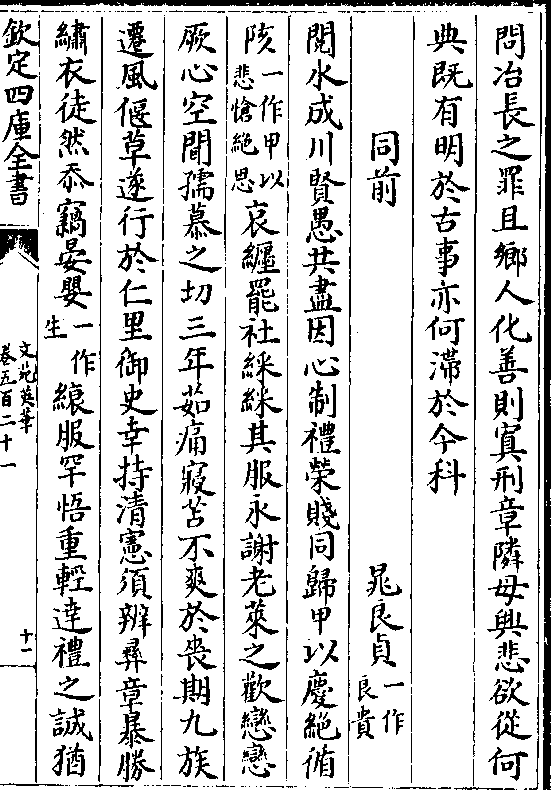 問冶長之罪且鄉人化善則寘刑章隣母興悲欲從何
典既有明於古事亦何滯於今科
同前　晁良貞一作良貴
閱水成川賢愚共盡因心制禮榮賤同歸甲以慶絶循
陔一作甲以悲愴絶思哀纏罷社綵綵其服永謝老萊之歡戀戀
厥心空聞孺慕之切三年茹痛寢苫不爽於喪期九族
遷風偃草遂行於仁里御史幸持清憲須辨彛章暴勝
繡衣徒然忝竊晏嬰一作生縗服罕悟重輕達禮之誠猶
欽定四庫全書
文苑英華
卷五百二十一
十一